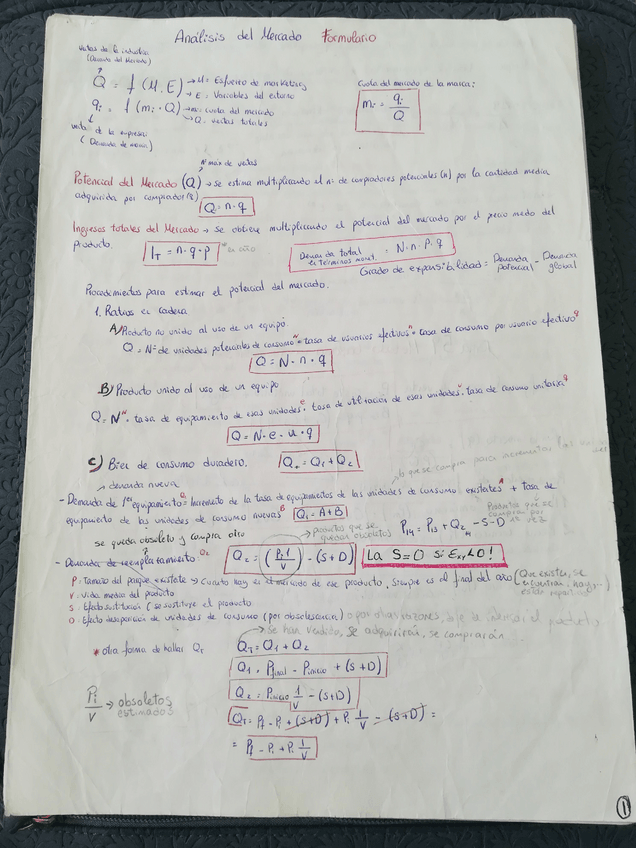 Análisis del Mercado Formulario
ventas de la industria
(Demanda del Mercado)
Q = f (M, E) → M = Esfuerzo de marketing
→ E = Variables del entorno
qi = f (mi · Q) → m = cuota del mercado
→ Q = ventas totales
ventas de la empresa
(Demanda de marca)
Cuota del mercado de la marca:
mi = qi / Q
Nº max de ventas
Potencial del Mercado (Q) → Se estima multiplicando el nº de compradores potenciales (n) por la cantidad media
adquirida por comprador (q)
Q = n · q
Ingresos totales del Mercado → Se obtiene multiplicando el potencial del mercado por el precio medio del
producto.
IT = n · q · p
* en año
Demanda total en términos monet. = N · n · p · q
Grado de expansibilidad = Demanda potencial - Demanda global
Procedimientos para estimar el potencial del mercado.
1. Ratios en cadena
A) Producto no unido al uso de un equipo
Q = Nº de unidades potenciales de consumo N · tasa de usuarios efectivos n · tasa de consumo por usuario efectivo q
Q = N · n · q
B) Producto unido al uso de un equipo
Q = N N · tasa de equipamiento de esas unidades e · tasa de utilización de esas unidades u · tasa de consumo unitaria q
Q = N · e · u · q
C) Bien de consumo duradero. QT = Q1 + Q2
demanda nueva
lo que se compra para incrementar
- Demanda de 1er equipamiento Q1 = Incremento de la tasa de equipamientos de las unidades de consumo existentes A + tasa de
equipamiento de las unidades de consumo nuevas B Q1 = A + B
se queda obsoleto y compra otro
productos que se quedan obsoletos
P14 = P13 + Q2 - S - D
Producto que se compran por 1ª vez
- Demanda de reemplazamiento: Q2 Q2 = (P · 1/V) - (S + D) La S = 0 si Exy < 0!
P: Tamaño del parque existente → Cuanto hay en el mercado de ese producto. Siempre es al final del año (Que existen, se encuentran, hay
V: Vida media del producto
S: Efecto sustitución (se sustituye el producto
D: Efecto desaparición de unidades de consumo (por obsolescencia) o por otras razones, el producto
Se han vendido, se adquirirán, se comprarán
* otra forma de hallar QT QT = Q1 + Q2
Q1 = Pfinal - Pinicio + (S + D)
Q2 = Pinicio 1/V - (S + D)
Pi/V → obsoletos estimados
QT = Pf - Pi + (S + D) + Pi 1/V - (S + D) =
= Pf - Pi + Pi 1/V
1